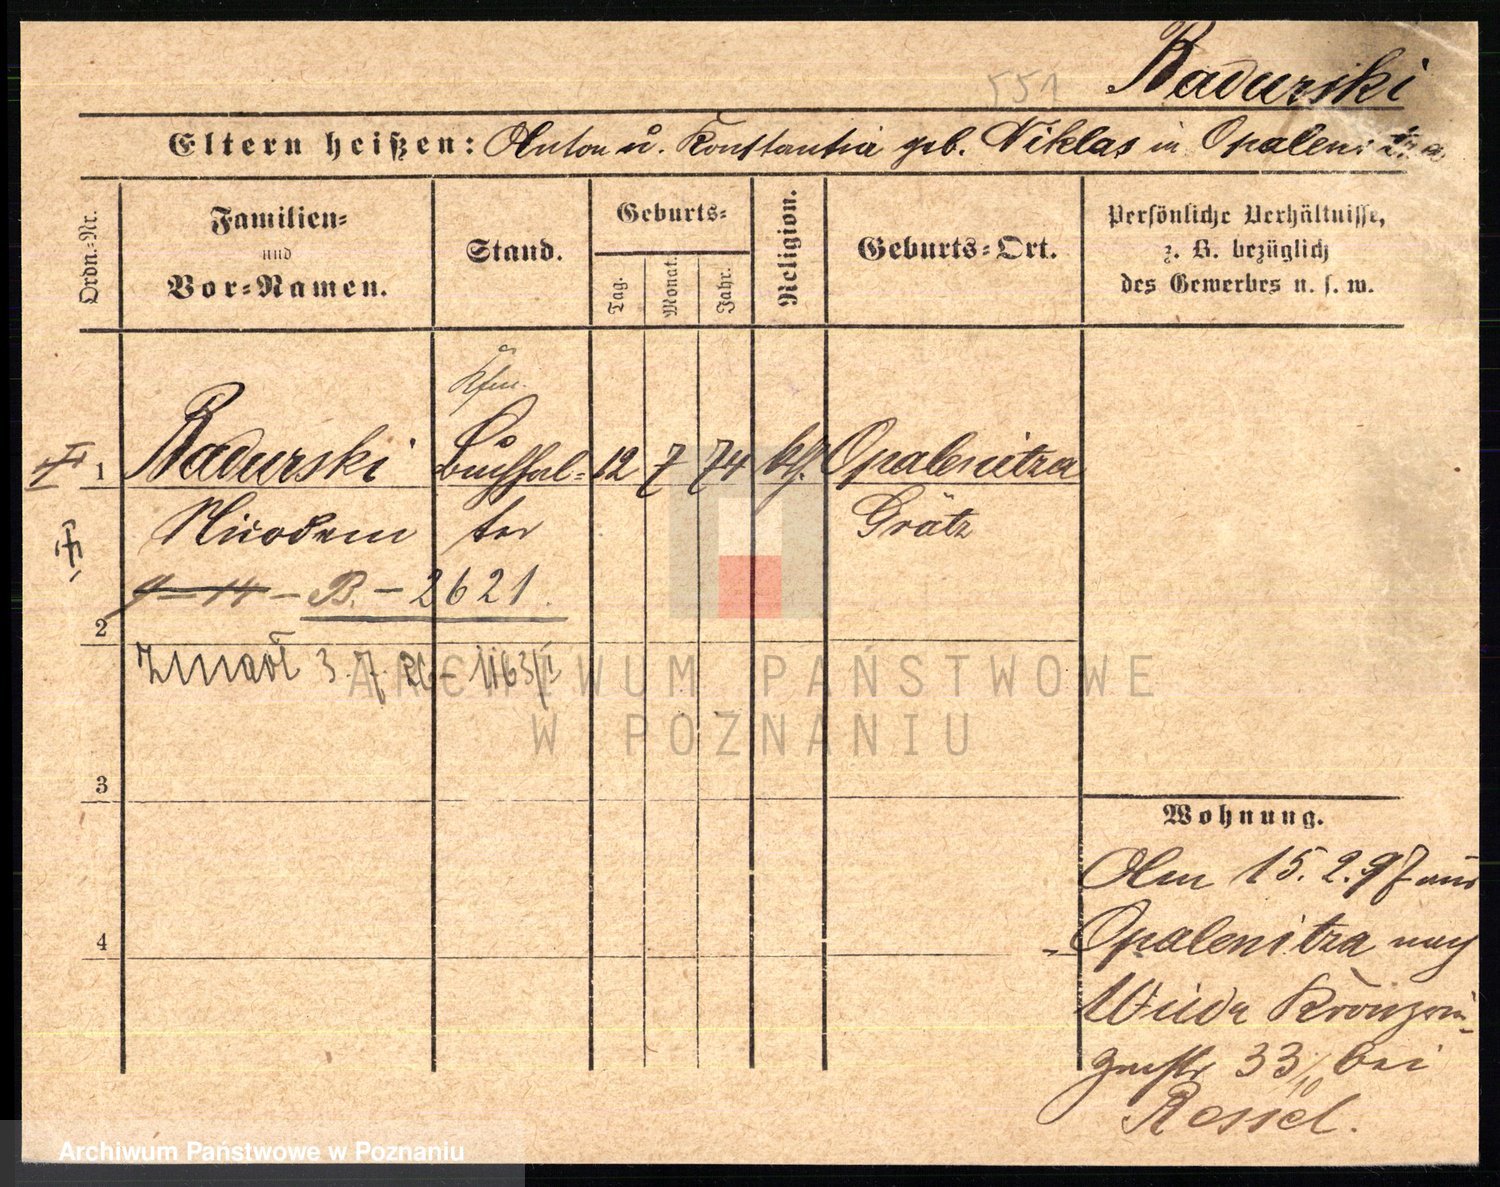 551
Badurski
Eltern heißen: Anton u. Konstantia geb. Niklas in Opalenitza
Ordn.-Nr.
Familien-
und
Vor-Namen.
Stand.
Geburts-
Tag.
Monat.
Jahr.
Religion.
Geburts-Ort.
Persönliche Verhältnisse,
z. B. bezüglich
des Gewerbes u. s. w.
Kfm.
1 Badurski Buchhal- 12 7 74 kth. Opalenitza
Nicodem ter Grätz
9-14 - B. - 2621.
2
Zmarł 3.7.26 - 1163/I
ARCHIWUM PAŃSTWOWE
W POZNANIU
3
4
Wohnung.
Am 15.2.97 aus
Opalenitza nach
Wilda Kronprin-
zenstr 33/10 bei
Rossel.
Archiwum Państwowe w Poznaniu